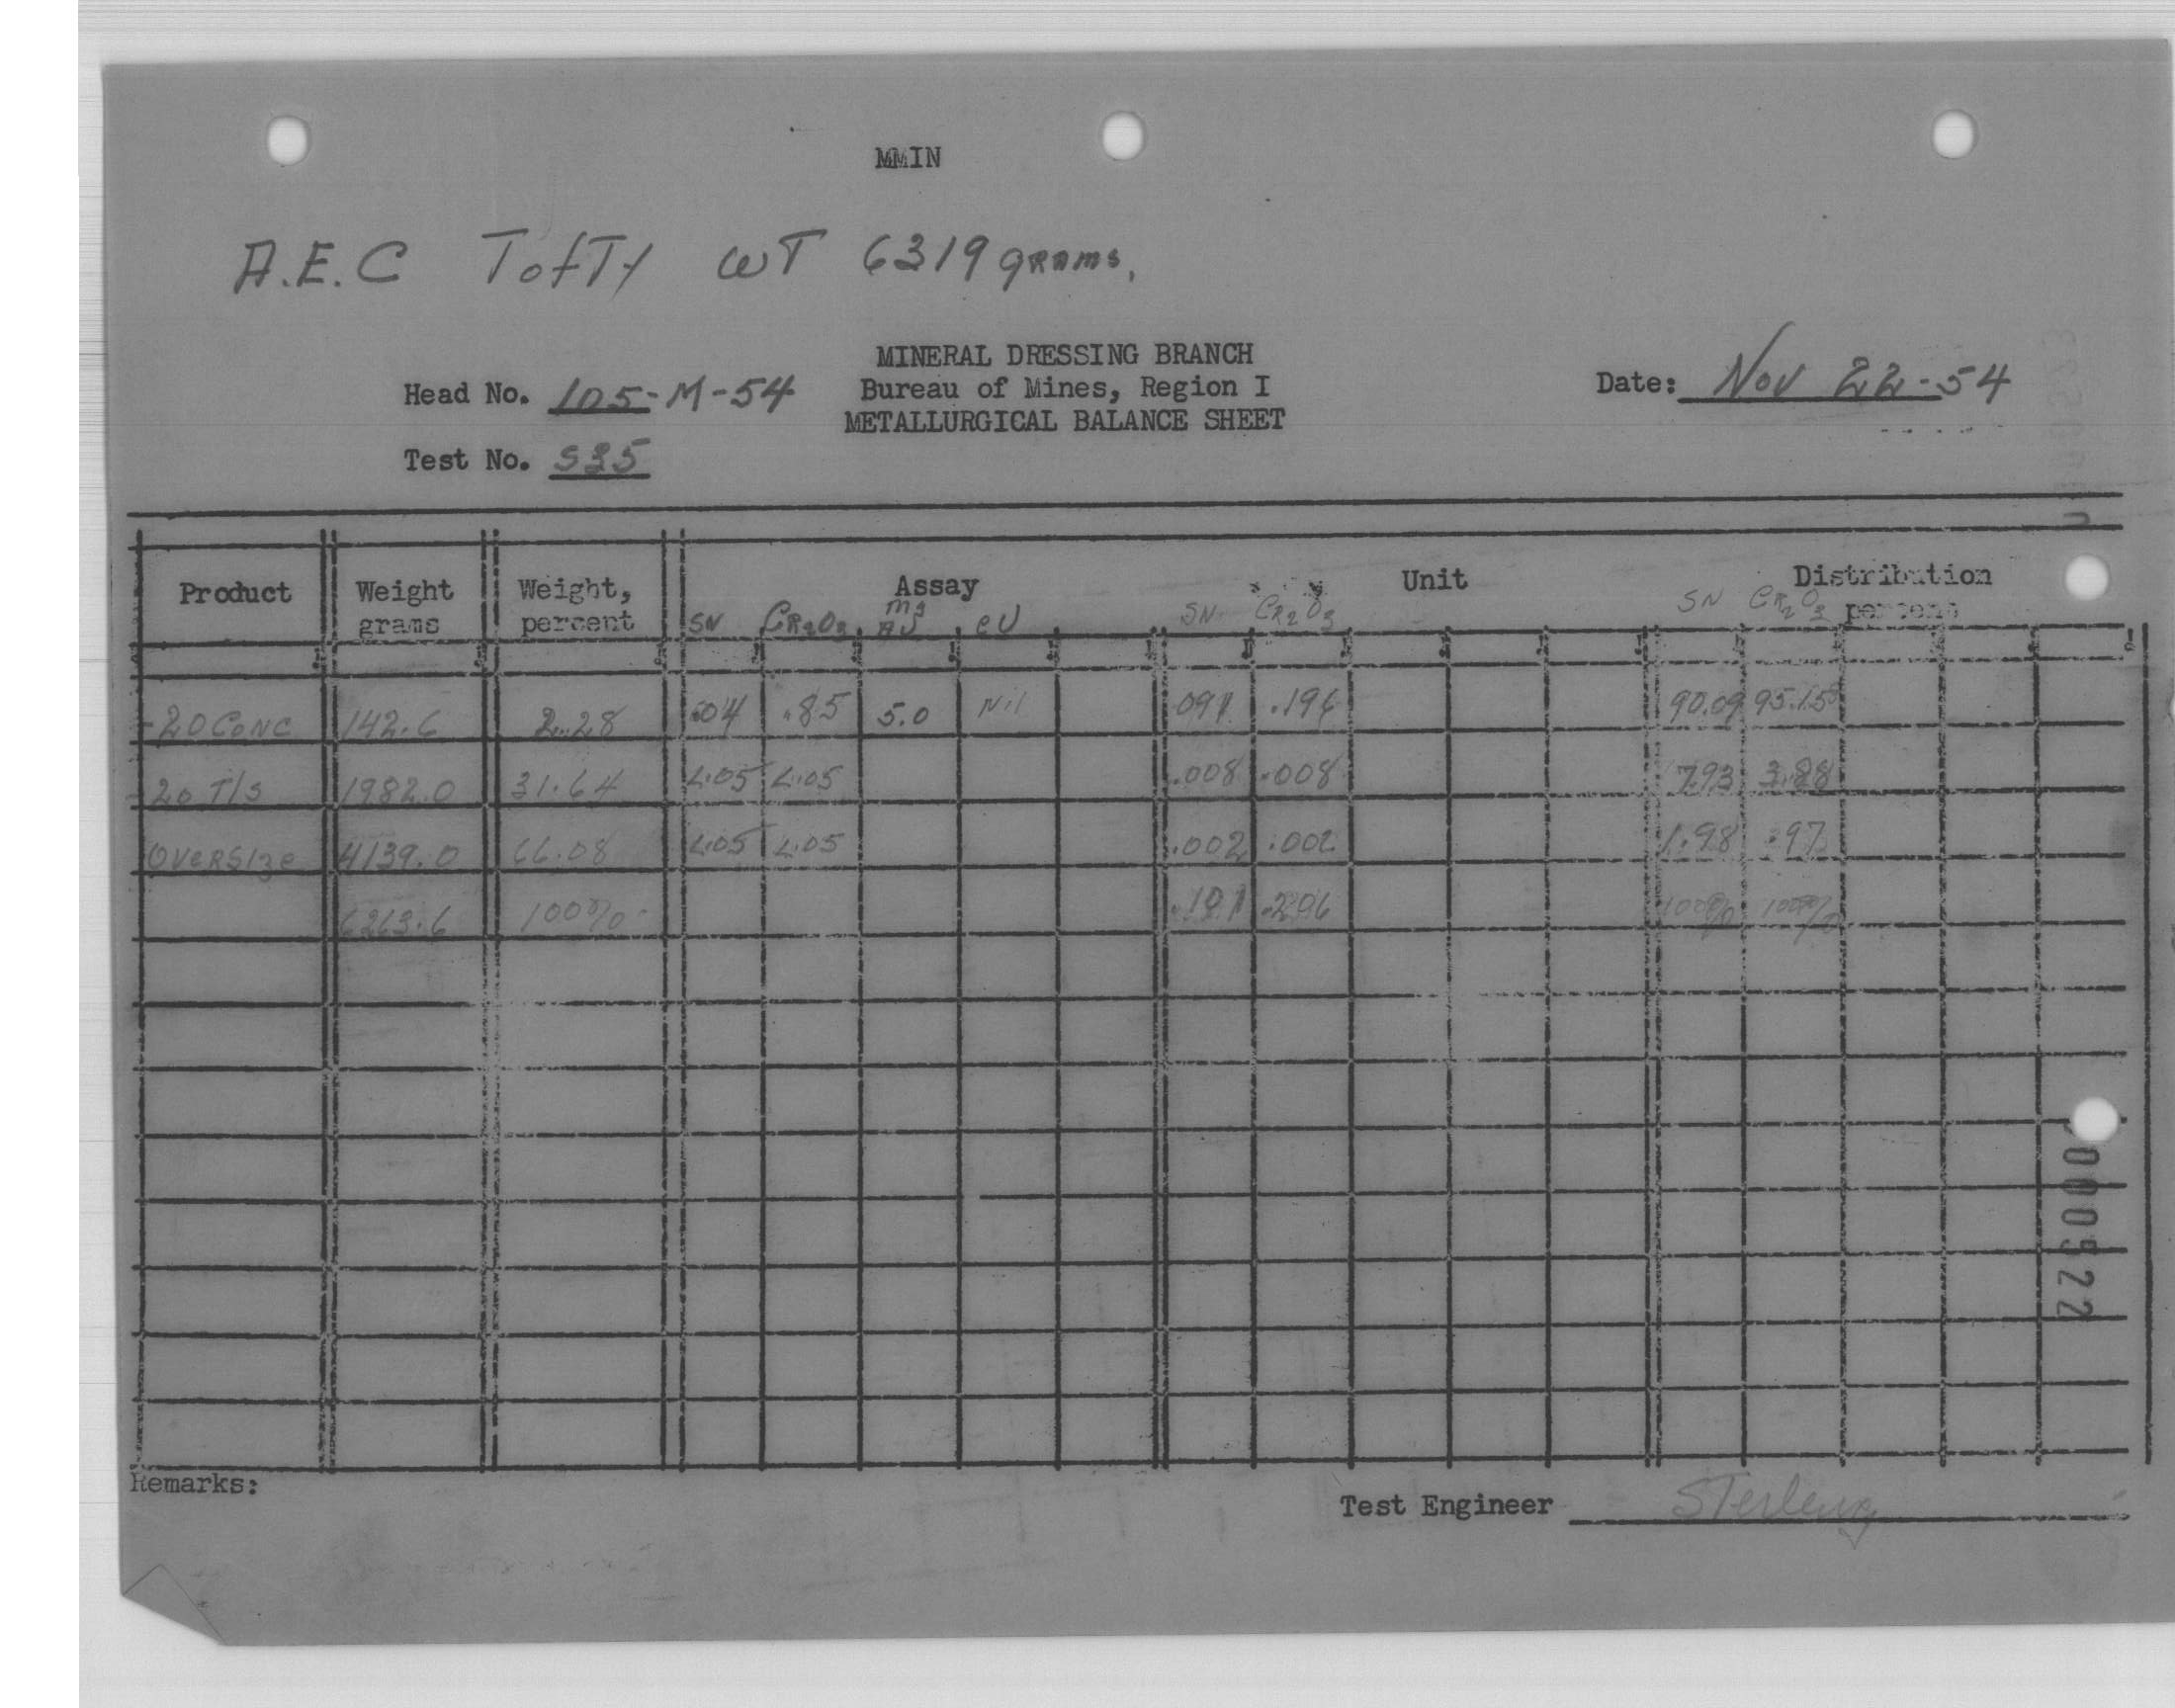 MMIN
A.E.C Tofty WT 6319 grams.
MINERAL DRESSING BRANCH
Head No. 105-M-54 Bureau of Mines, Region I Date: Nov 22-54
METALLURGICAL BALANCE SHEET
Test No. S35
Product Weight grams Weight, percent Assay Unit Distribution percent
SN CR2O3 mg AU eU SN CR2O3 SN CR2O3
-20 CONC 142.6 2.28 .85 5.0 Nil .091 .196 90.09 95.15
-20 T/S 1982.0 31.64 <.05 <.05 .008 .008 7.93 3.88
OVERSIZE 4139.0 66.08 <.05 <.05 .002 .002 1.98 .97
6263.6 100% .101 .206 100% 100%
000522
Remarks:
Test Engineer Sterling